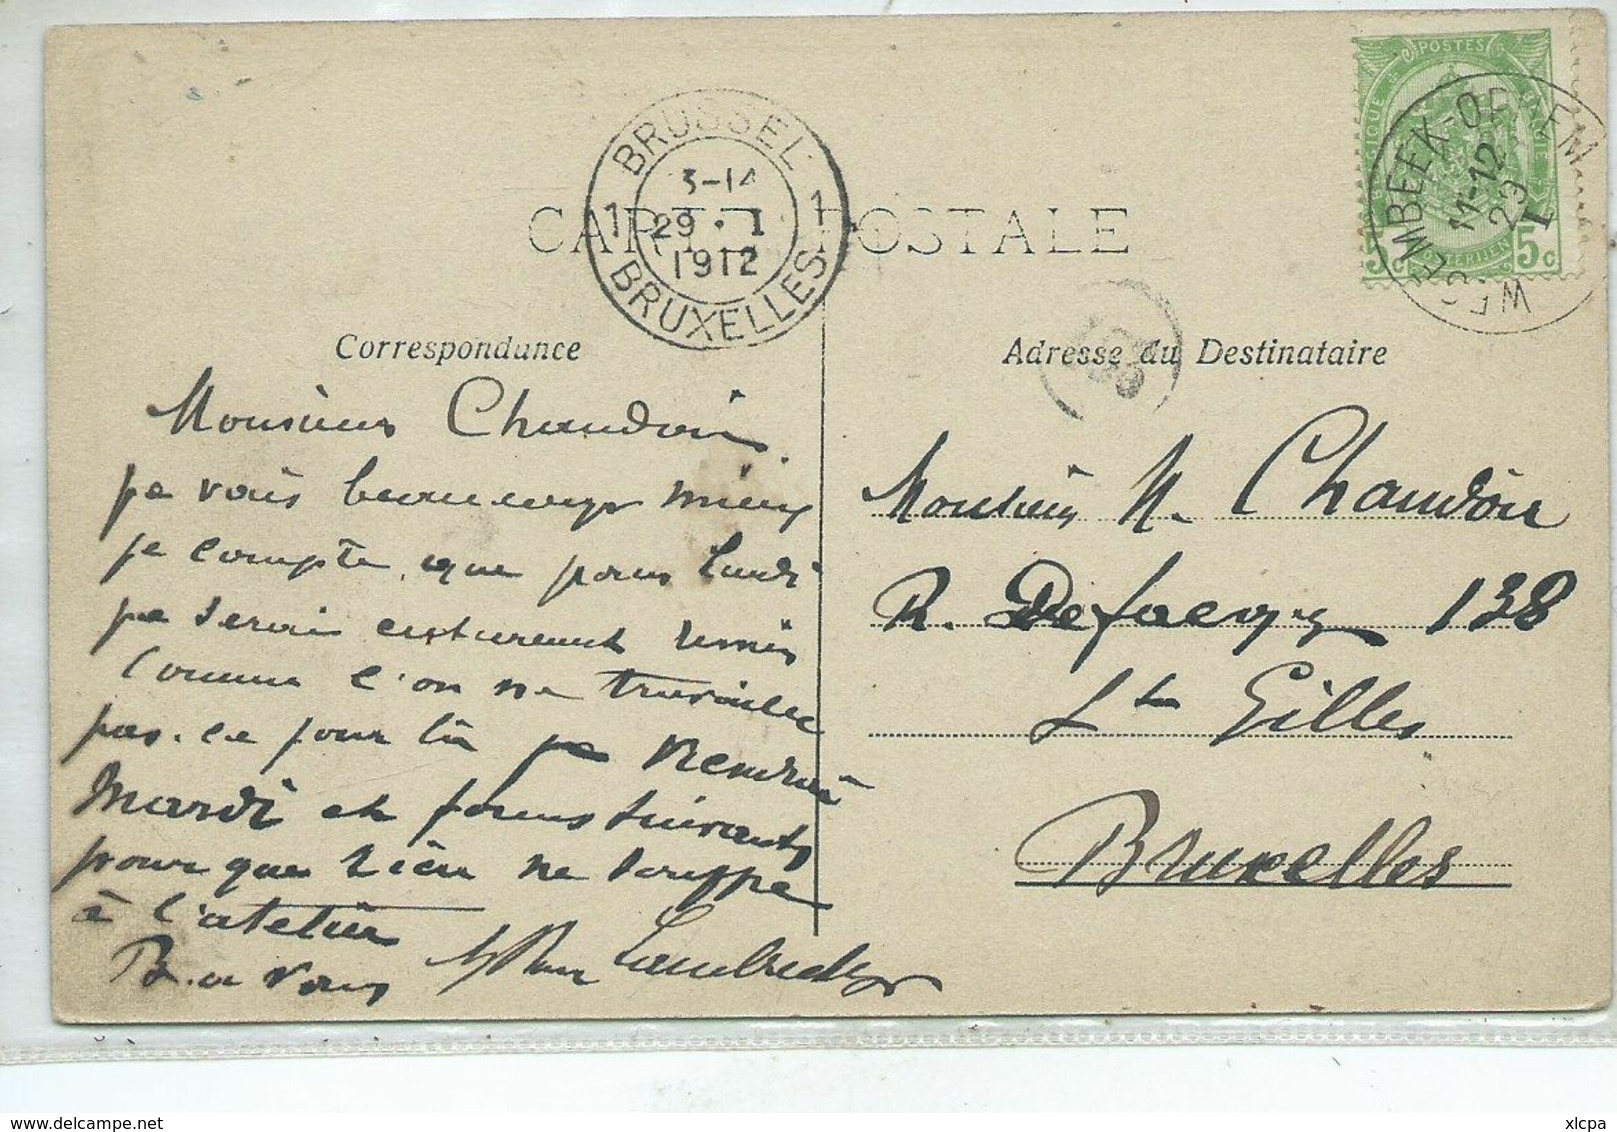 BRUSSEL
1 3-14 1
29 · I
1912
BRUXELLES
POSTES
5c 5c
WESEMBEEK-OPPEM
11-12
I
CARTE POSTALE
Correspondance
Monsieur Chaudoir
je vais beaucoup mieux
je compte que pour Lundi
je serai entièrement remis
Comme l'on ne travaille
pas ce jour là je viendrai
Mardi et jours suivants
pour que rien ne souffre
à l'atelier
B. a vous
Adresse du Destinataire
Monsieur N. Chaudoir
R. Defacqz 138
St Gilles
Bruxelles
xlcpa